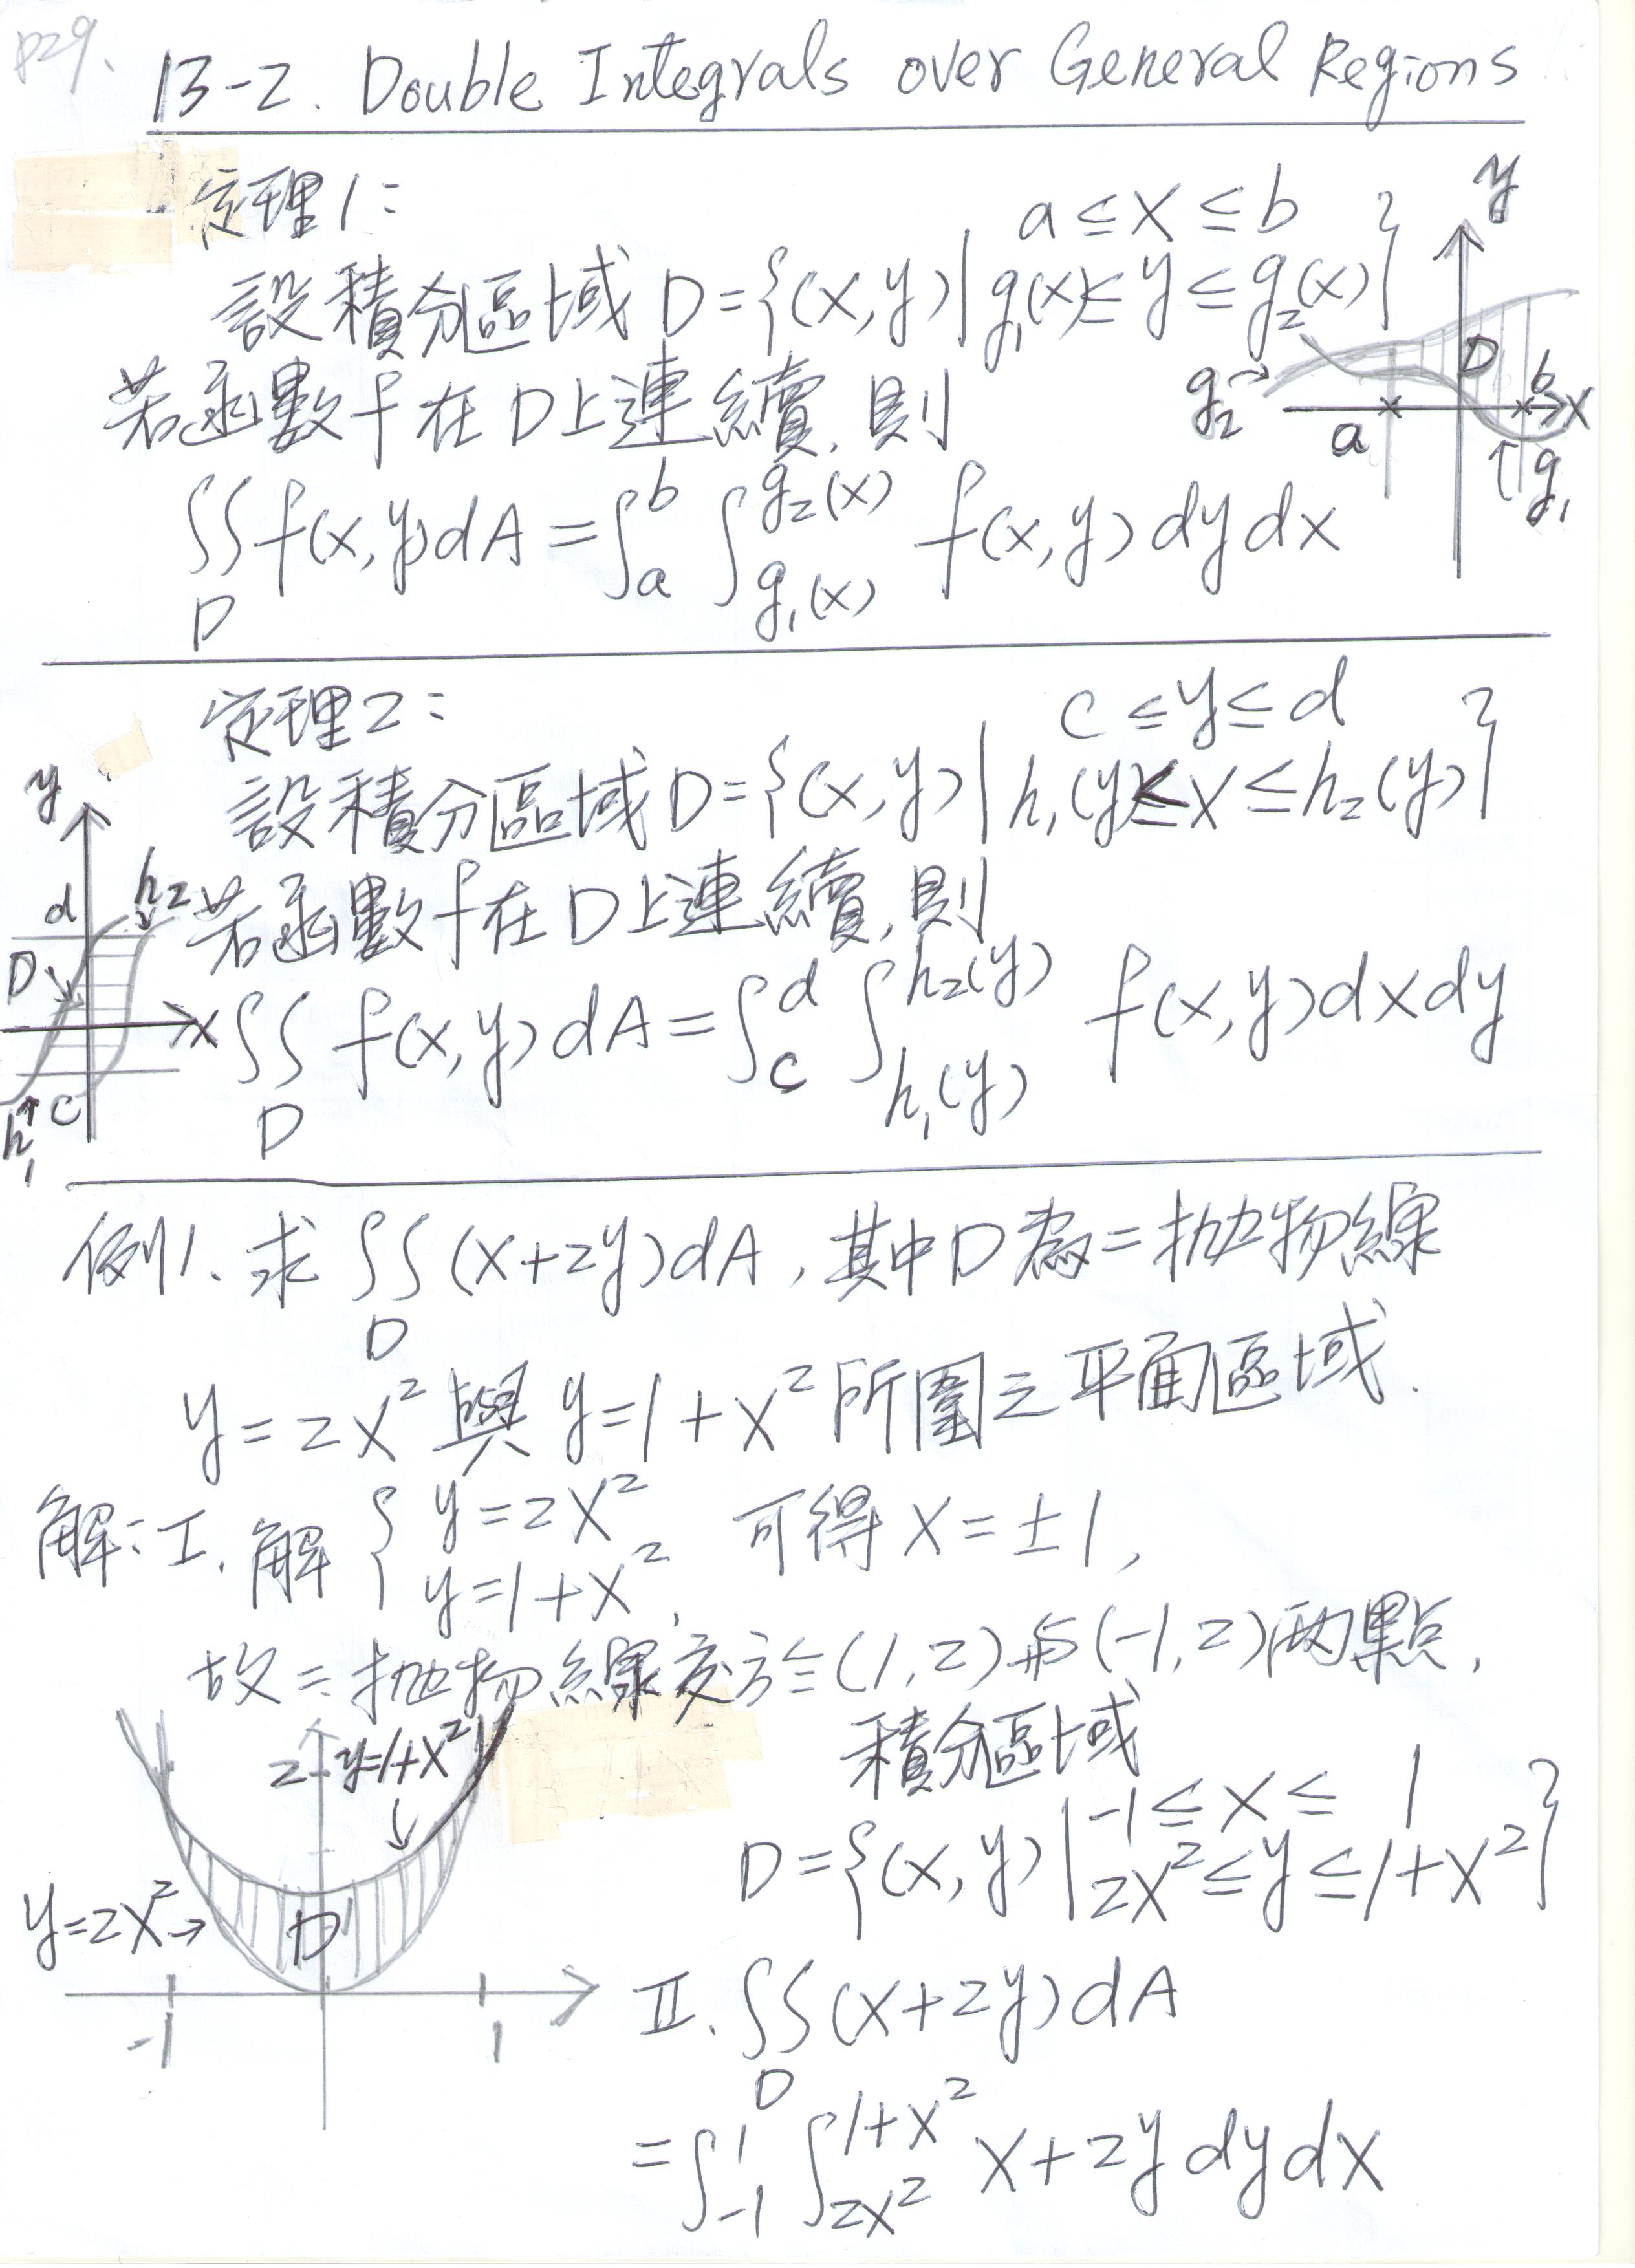 p29.
13-2. Double Integrals over General Regions
定理1:
a ≤ x ≤ b
設積分區域 D={(x,y)| g₁(x) ≤ y ≤ g₂(x)}
若函數f在D上連續,則
∬ f(x,y)dA = ∫ₐᵇ ∫ g₂(x) g₁(x) f(x,y)dydx
D
y
D
g₂
b
x
a
g₁
定理2:
c ≤ y ≤ d
設積分區域 D={(x,y)| h₁(y) ≤ x ≤ h₂(y)}
若函數f在D上連續,則
∬ f(x,y)dA = ∫ d c ∫ h₂(y) h₁(y) f(x,y)dxdy
D
y
d
h₂
D
x
c
h₁
例1. 求 ∬ (x+2y)dA, 其中D為二拋物線
D
y=2x² 與 y=1+x² 所圍之平面區域.
解:I. 解 { y=2x² 可得 x=±1,
y=1+x²,
故二拋物線交於(1,2)与(-1,2)两點,
積分區域
-1 ≤ x ≤ 1
D={(x,y)| 2x² ≤ y ≤ 1+x²}
2
y=1+x²
y=2x²
D
-1
1
II. ∬ (x+2y)dA
D
= ∫₋₁¹ ∫ 1+x² 2x² x+2y dydx